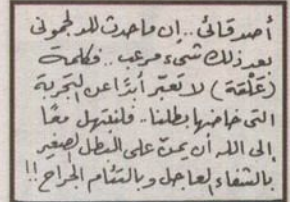 أصدقائى .. إن ما حدث للدلجمونى
بعد ذلك شىء مرعب .. فكلمة
(عَلْقة) لا تعبّر أبدًا عن التجربة
التى خاضها بطلنا .. فلنبتهل معًا
إلى الله أن يمنّ على البطل الصغير
بالشفاء العاجل وبالتئام الجراح !!